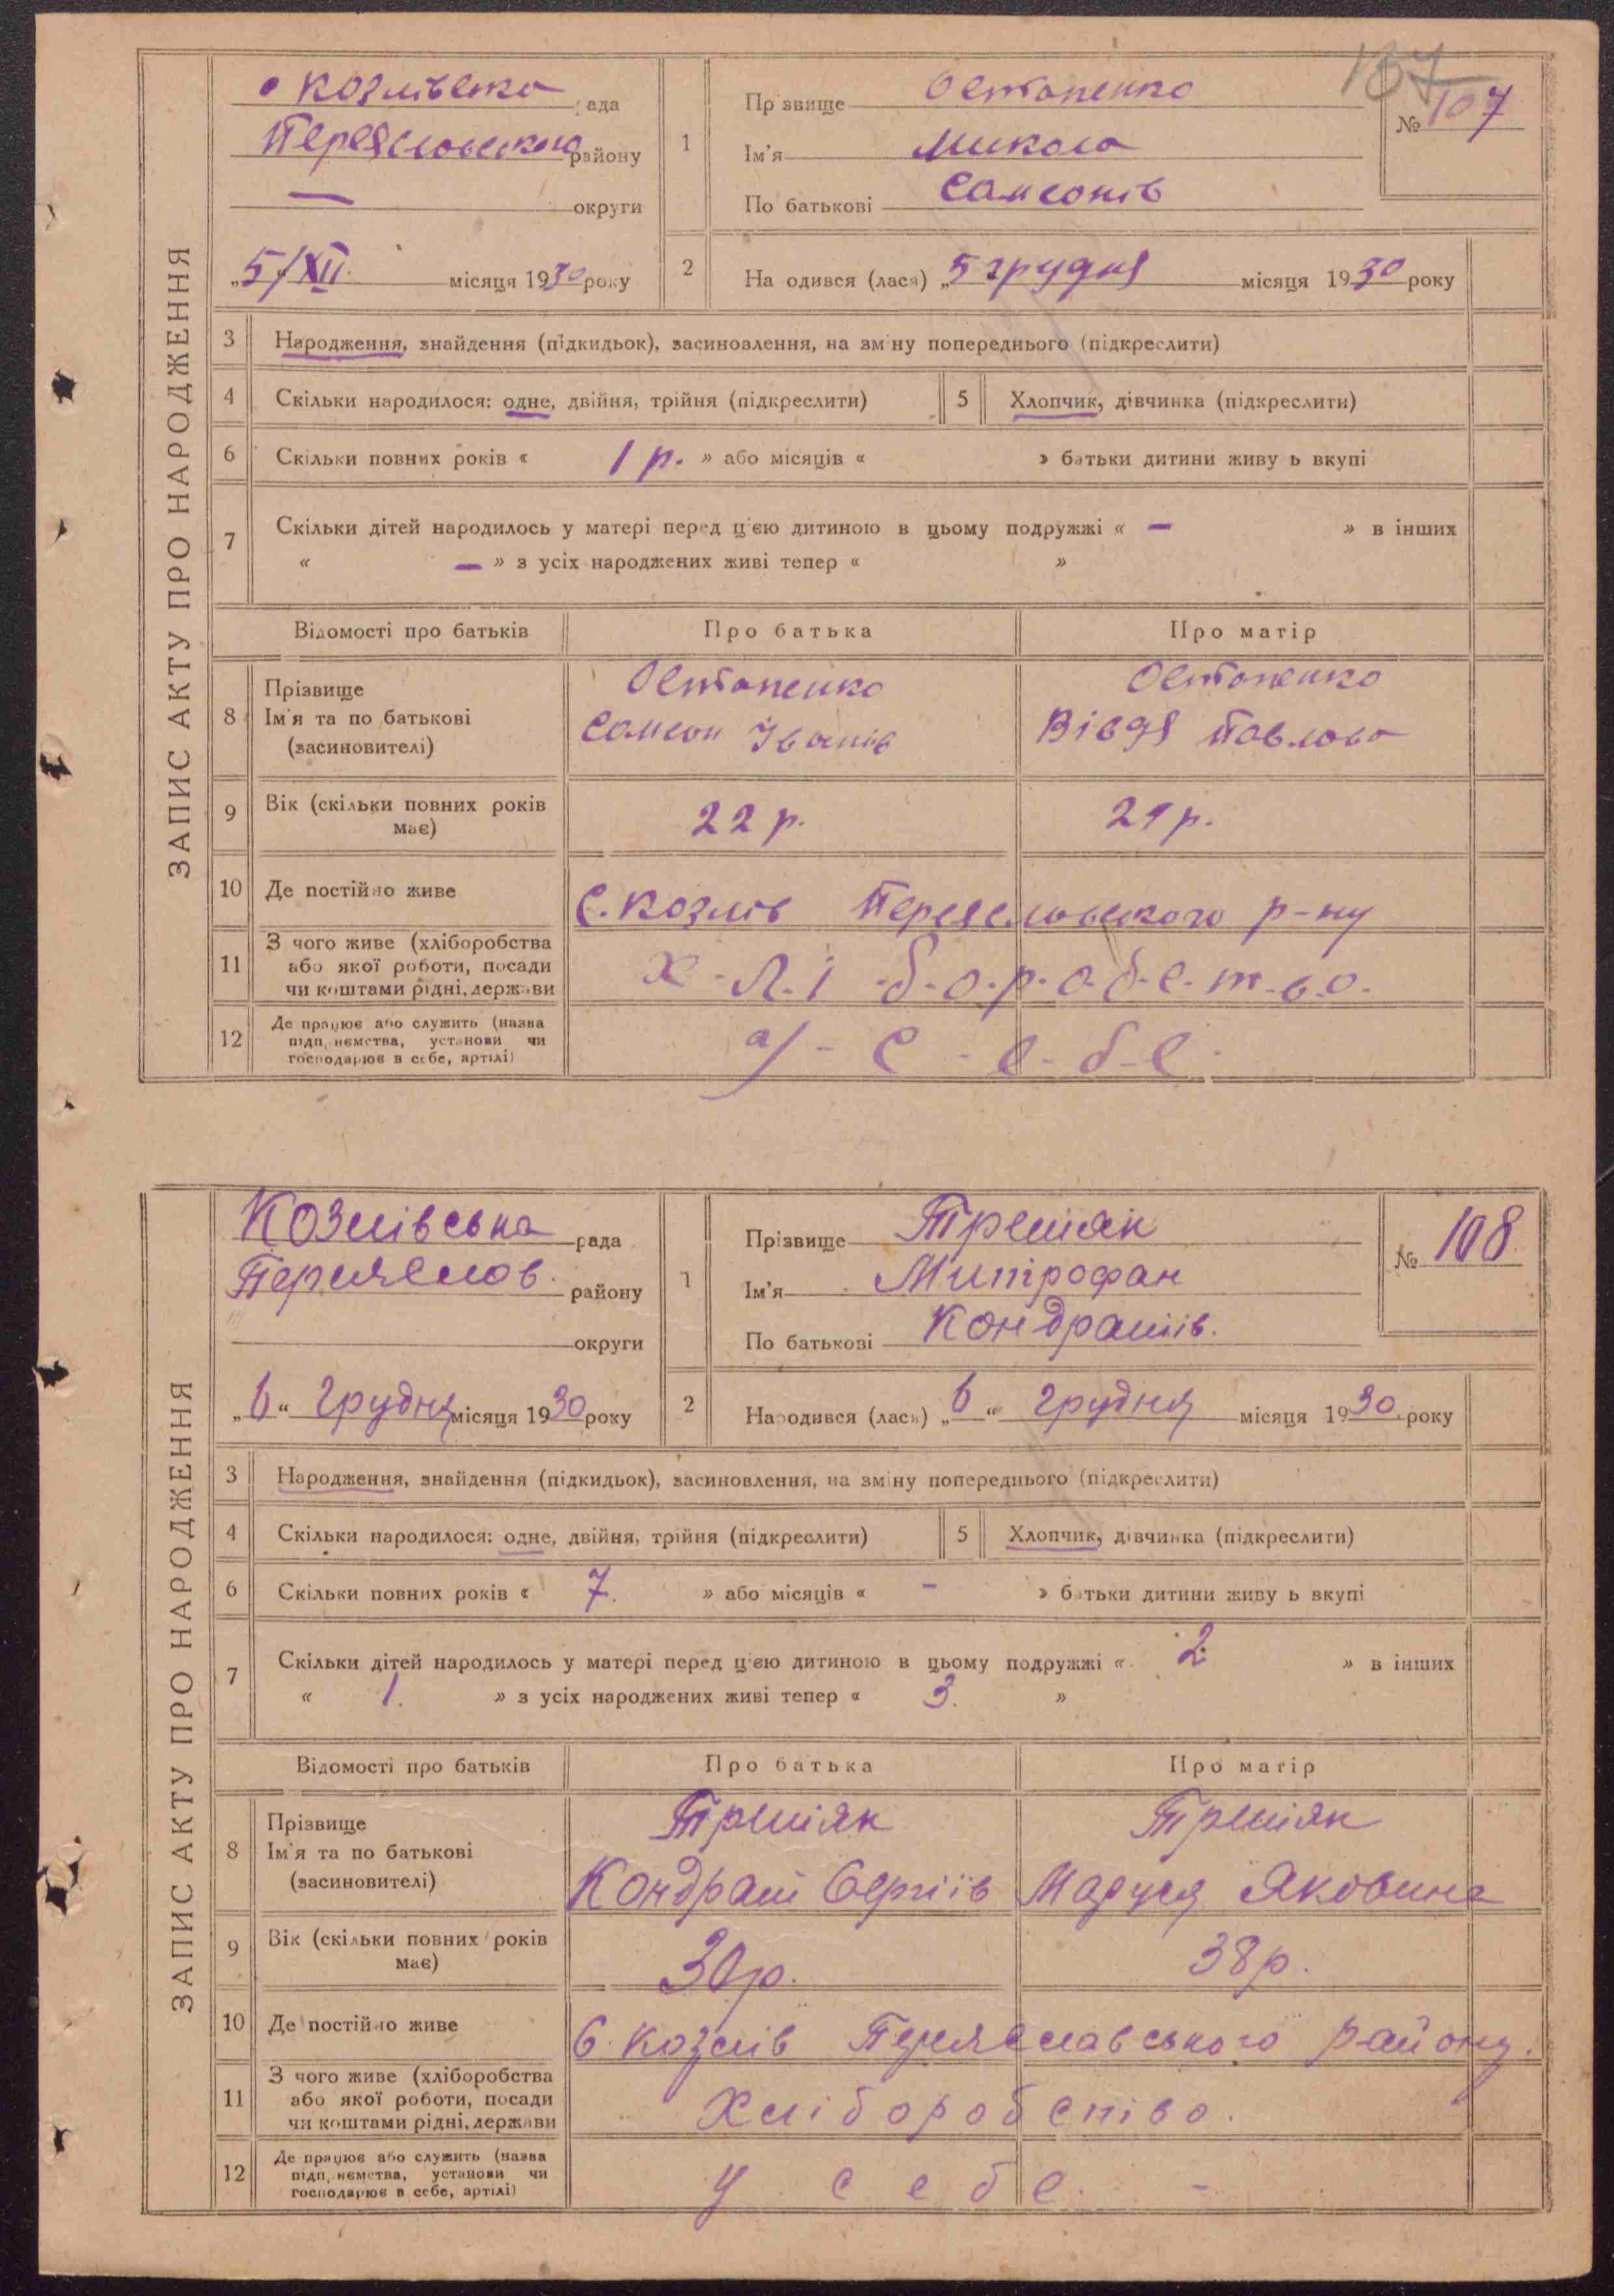 ЗАПИС АКТУ ПРО НАРОДЖЕННЯ
Козлівська рада
Переяславського району
— округи
„5/XII місяця 1930 року
137
№ 107
1 Прізвище Остапенко
Ім'я Микола
По батькові Самсонів
2 На одився (лася) „5 грудня місяця 1930 року
3 Народження, знайдення (підкидьок), засиновлення, на зміну попереднього (підкреслити)
4 Скільки народилося: одне, двійня, трійня (підкреслити) 5 Хлопчик, дівчинка (підкреслити)
6 Скільки повних років « 1 р. » або місяців « » батьки дитини живу ь вкупі
7 Скільки дітей народилось у матері перед цією дитиною в цьому подружжі « — » в інших
« — » з усіх народжених живі тепер « »
Відомості про батьків Про батька Про матір
8 Прізвище Остапенко Остапенко
Ім'я та по батькові Самсон Іванів Вівдя Павлова
(засиновителі)
9 Вік (скільки повних років має) 22 р. 21 р.
10 Де постійно живе С. Козлів Переяславського р-ну
11 З чого живе (хліборобства
або якої роботи, посади
чи коштами рідні, держави Х-л-і-б-о-р-о-б-с-т-в-о.
12 Де працює або служить (назва
підп, немства, установи чи
господарює в себе, артілі) у-с-е-б-е
ЗАПИС АКТУ ПРО НАРОДЖЕННЯ
Козлівська рада
Переяслов. району
округи
„6“ Грудня місяця 1930 року
№ 108.
1 Прізвище Третяк
Ім'я Митрофан
По батькові Кондратів.
2 Народився (лася) „6“ Грудня місяця 1930 року
3 Народження, знайдення (підкидьок), засиновлення, на зміну попереднього (підкреслити)
4 Скільки народилося: одне, двійня, трійня (підкреслити) 5 Хлопчик, дівчинка (підкреслити)
6 Скільки повних років « 7. » або місяців « - » батьки дитини живу ь вкупі
7 Скільки дітей народилось у матері перед цією дитиною в цьому подружжі « 2 » в інших
« 1. » з усіх народжених живі тепер « 3. »
Відомості про батьків Про батька Про матір
8 Прізвище Третяк Третяк
Ім'я та по батькові Кондрат Сергіїв Маруся Яковина
(засиновителі)
9 Вік (скільки повних років має) 30 р. 38 р.
10 Де постійно живе С. Козлів Переяславського району.
11 З чого живе (хліборобства
або якої роботи, посади
чи коштами рідні, держави Хліборобство.
12 Де працює або служить (назва
підп, немства, установи чи
господарює в себе, артілі) У себе. -